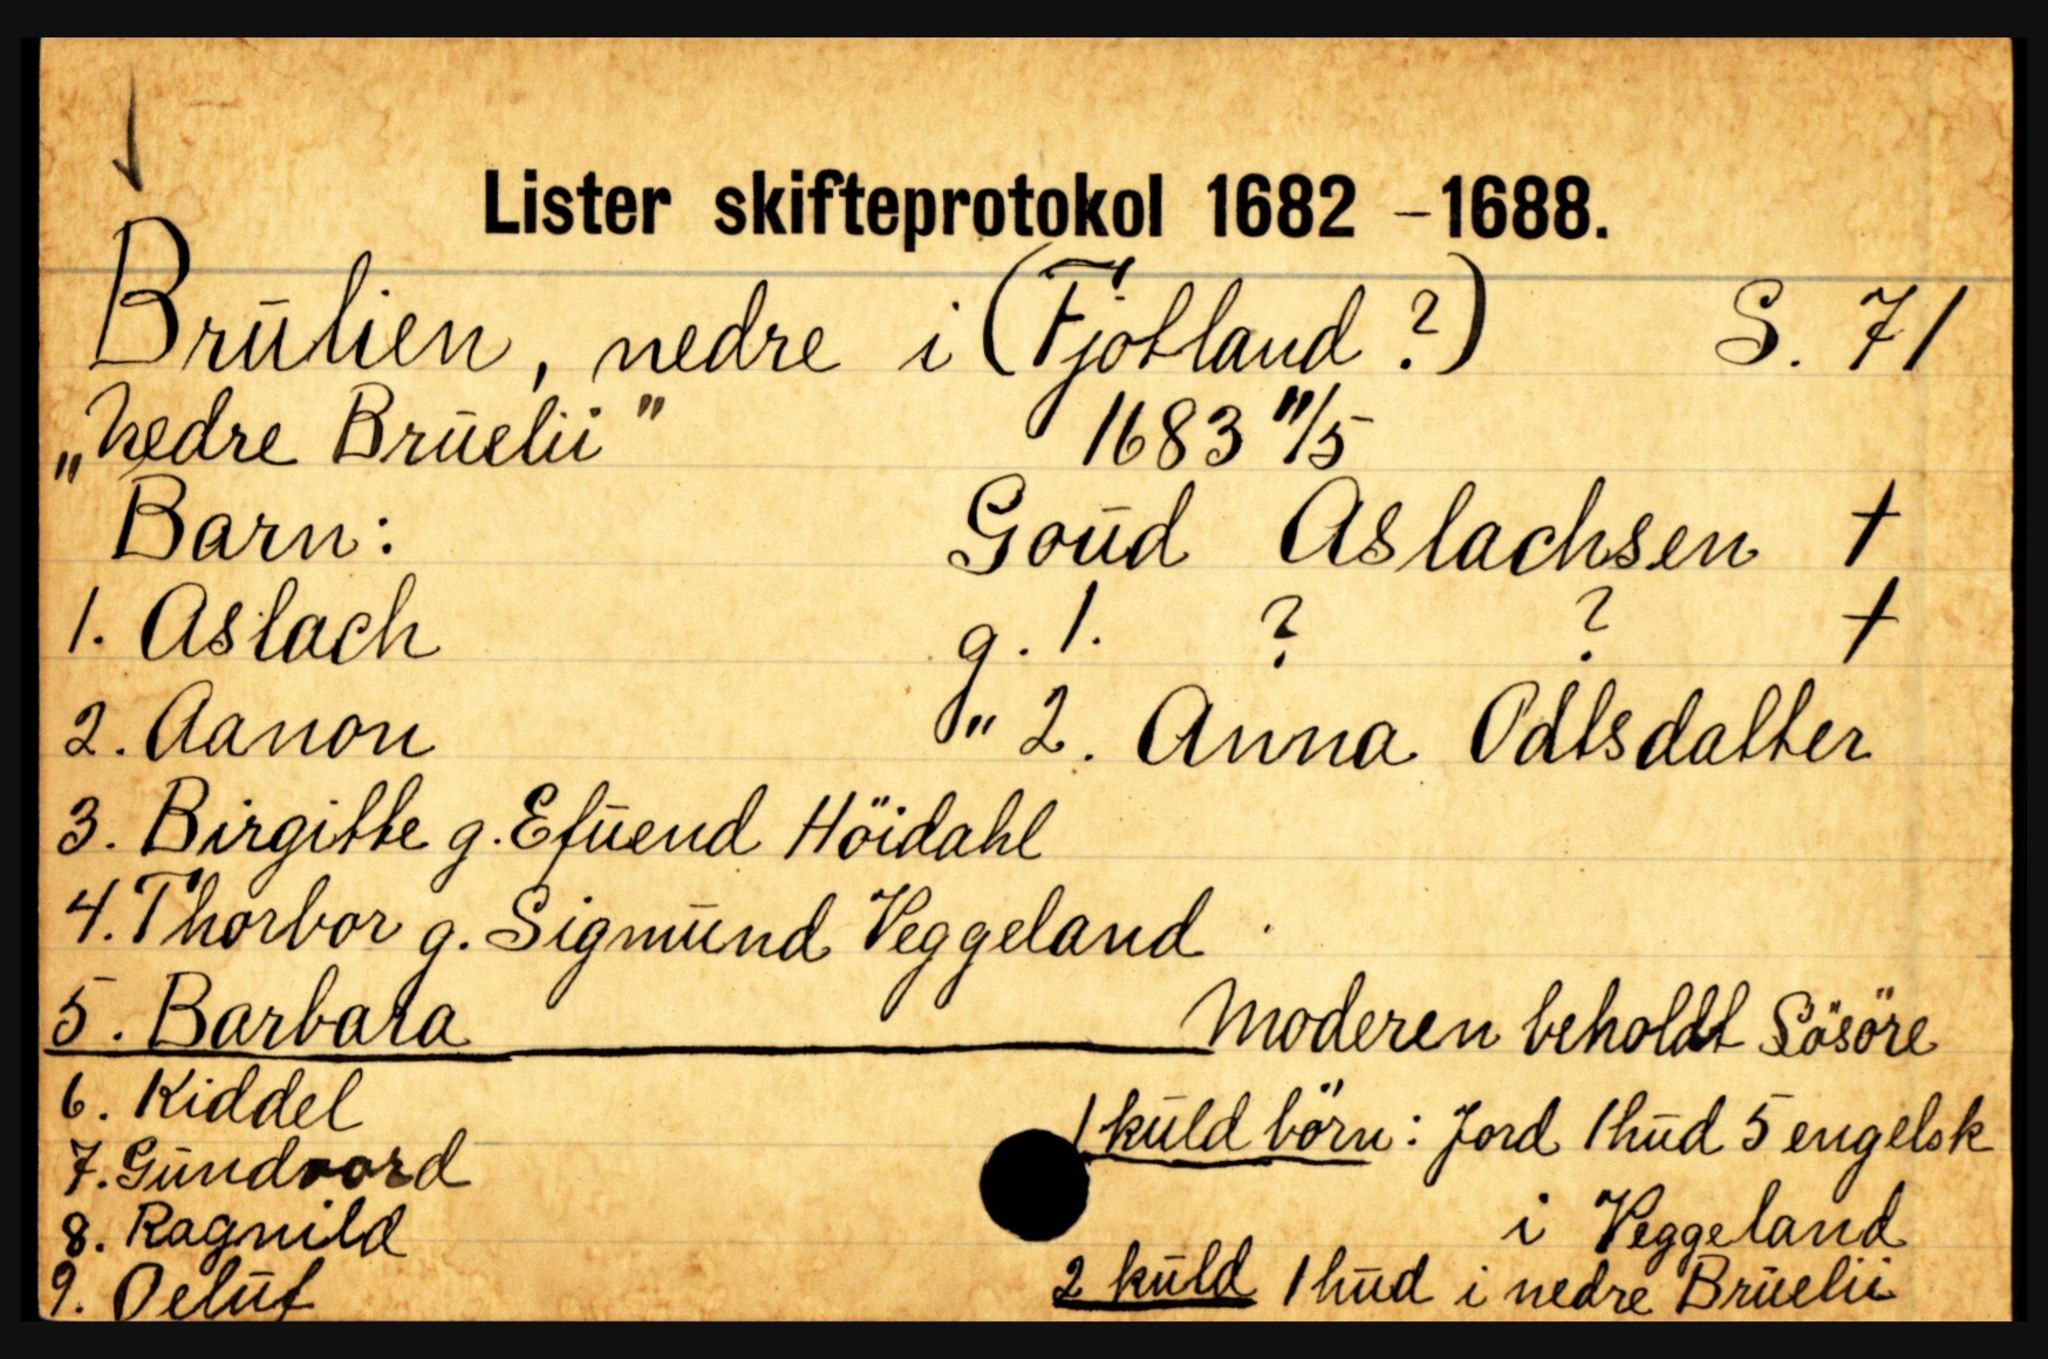 Lister skifteprotokol 1682 – 1688.
Brūlien, nedre i (Fjotland ?) S. 71
„Nedre Brūelii" 1683 11/5
Barn: Goūd Aslachsen †
1. Aslach g. 1. ? ? †
2. Aanon " 2. Anna Odtsdatter
3. Birgitte g. Efūend Höidahl
4. Thorbor g. Sigmūnd Veggeland
5. Barbara Moderen beholdt Lösöre
6. Kiddel 1 kūld börn: Jord 1 hūd 5 engelsk
7. Gūndvord i Veggeland
8. Ragnild
9. Oelūf 2 kūld 1 hūd i nedre Brūelii